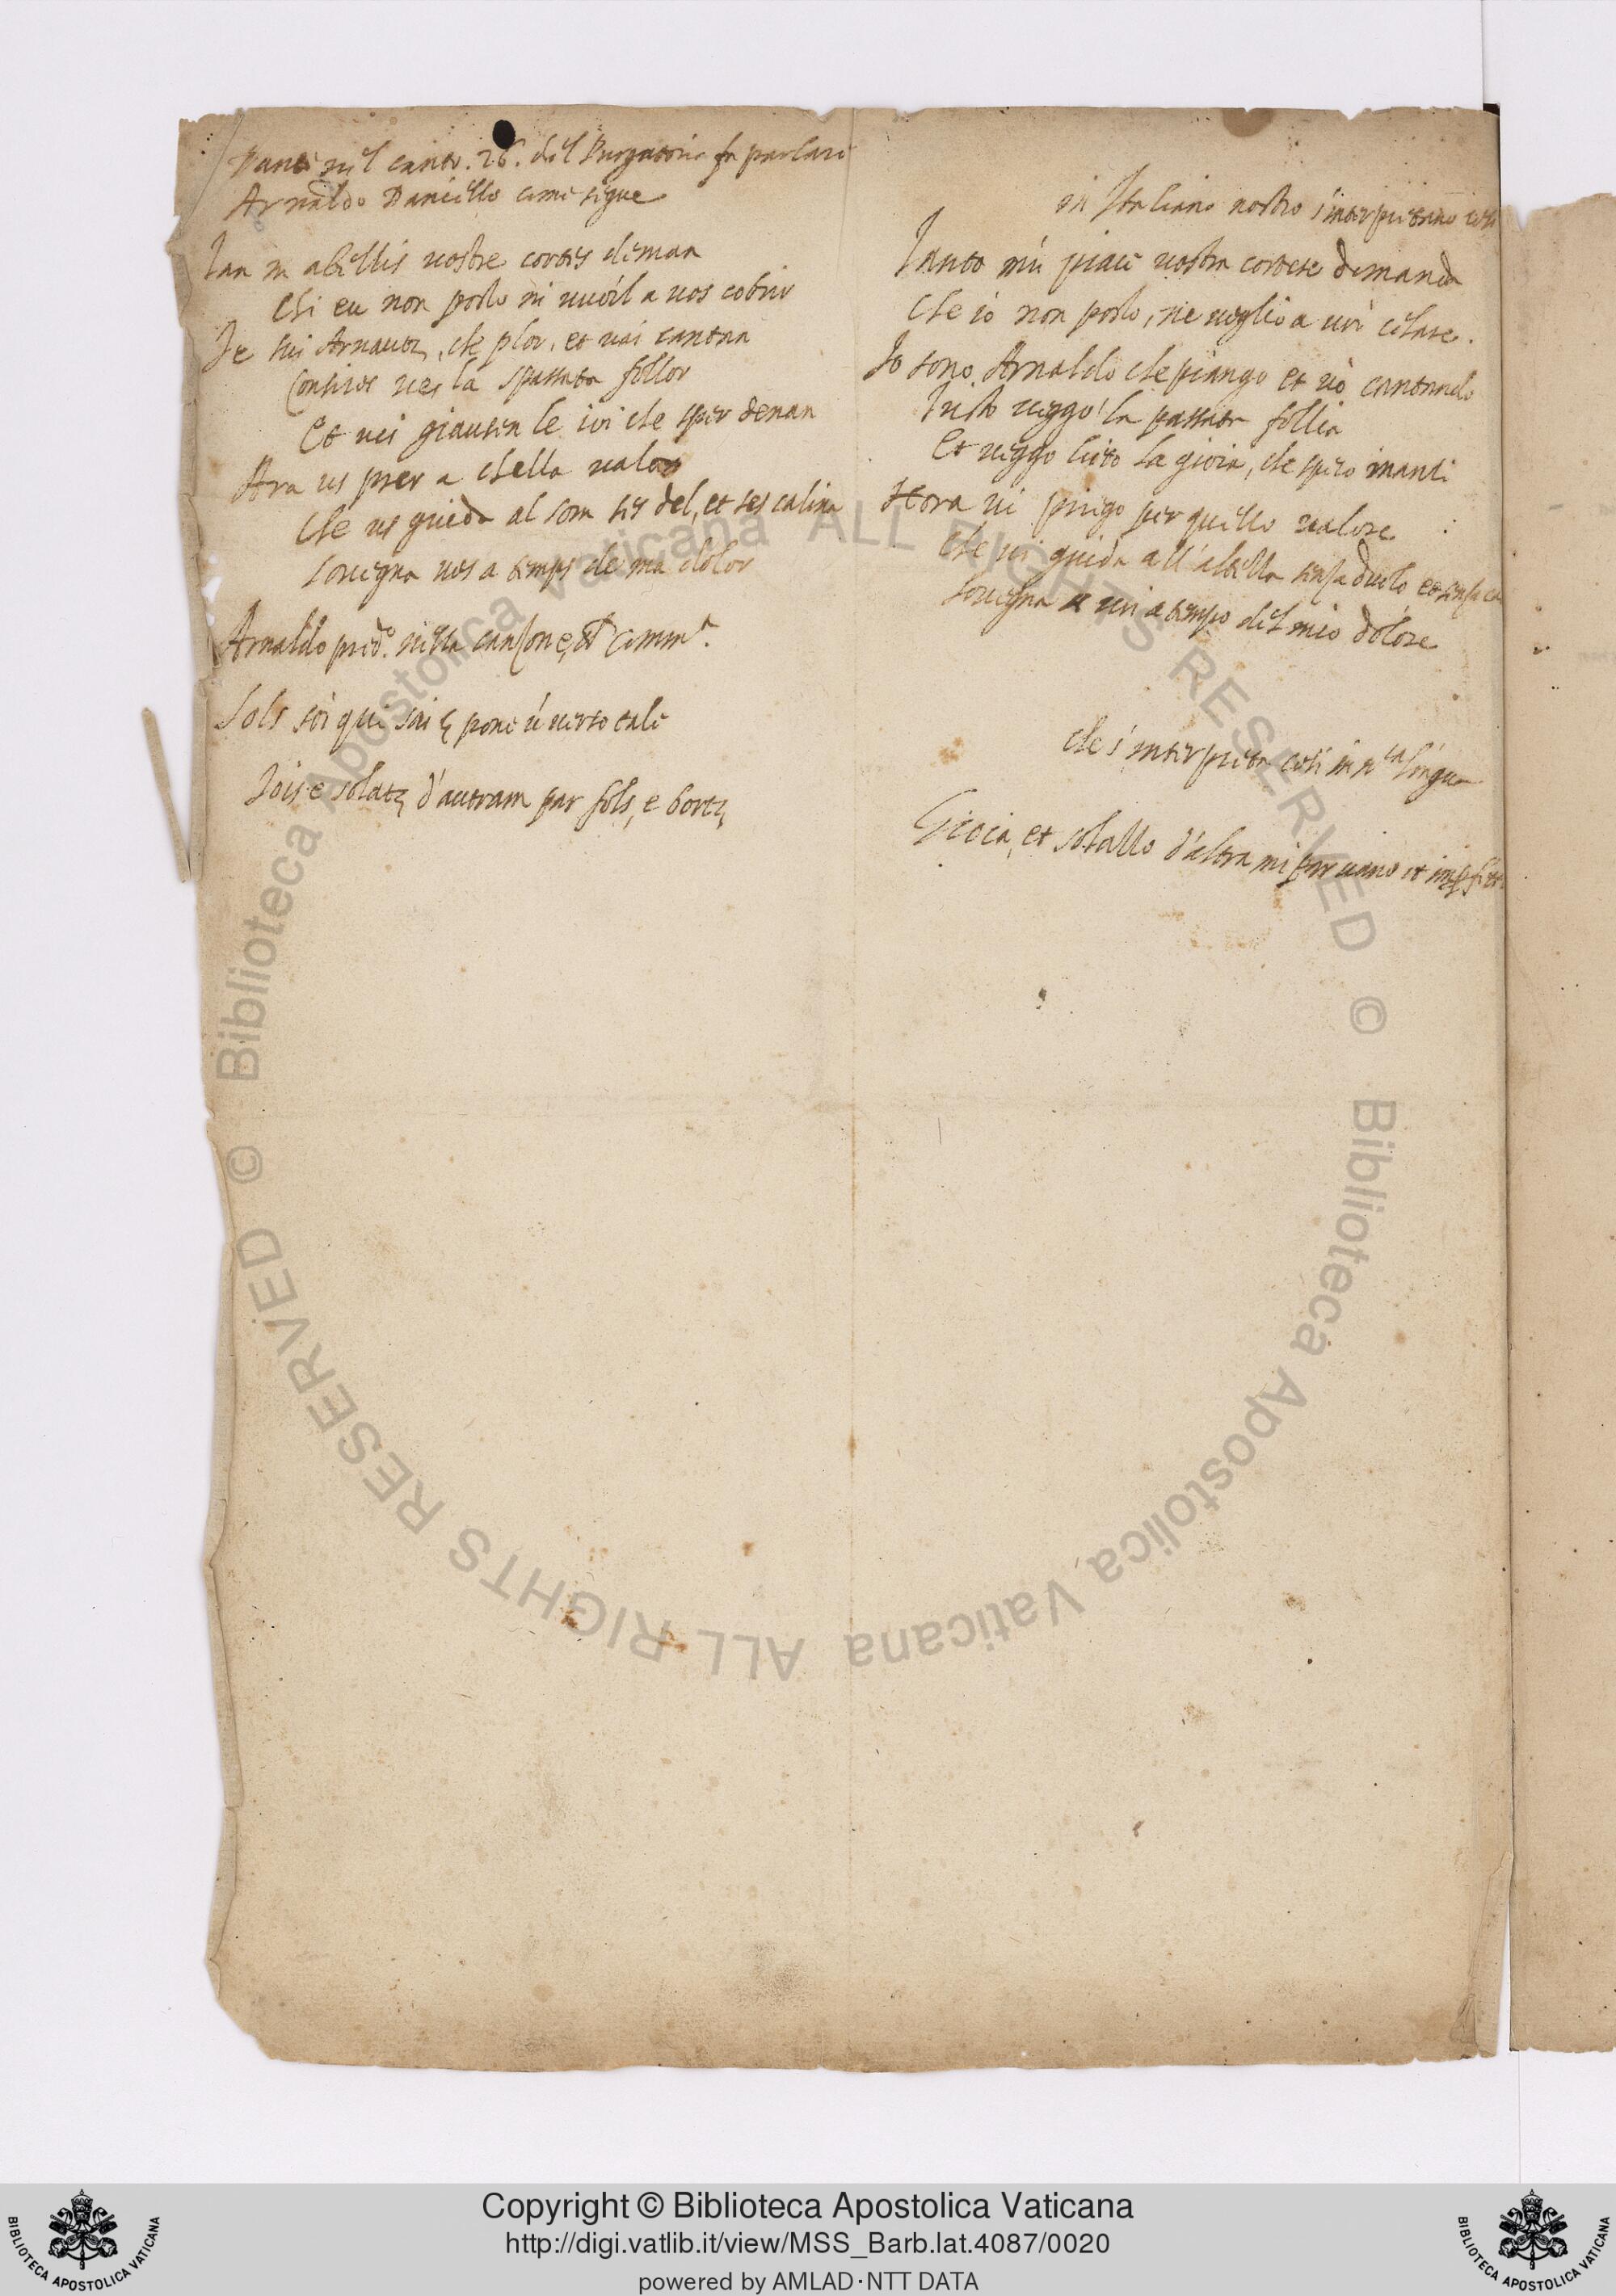 Dante nel canto. 26. del Purgatorio fa parlare
Arnaldo Daniello come segue
Tan m abellis vostre cortes deman
Chi eu non posso ni vuoil a vos cobrir
Je sui Arnautz, che plor, et vai cantan
Consiros vei la spassata follor
Et vei giausen le ioi che sper denan
Ara us prer a chella valor
Che us guida al som ses del, et ses calina
Sovegna vos a temps de ma dolor
Arnaldo pred.o nella canzone, che comm.a
Sols soi qui sai pone ú verso tale
Iois e solatz d'autram par fols, e bortz
in Italiano nostro s'interpretano cosi
Tanto mi piace vostra cortese demanda
Che iò non posso, ne voglio a voi celare.
Io sono Arnaldo che piango et vò cantando
Tristo veggo la passata follia
Et veggo lieto la gioia, che spero inanti
Hora vi priego per quello valore
Che vi guida all'altella senza duolo et senza ca
Sovegna a voi a tempo del mio dolore
che s'interpreta cosi in n.ra lingua
Gioia, et solallo d'altra mi par vano et
© Biblioteca Apostolica Vaticana ALL RIGHTS RESERVED © Biblioteca Apostolica Vaticana ALL RIGHTS RESERVED
BIBLIOTECA APOSTOLICA VATICANA
Copyright © Biblioteca Apostolica Vaticana
http://digi.vatlib.it/view/MSS_Barb.lat.4087/0020
powered by AMLAD·NTT DATA
BIBLIOTECA APOSTOLICA VATICANA